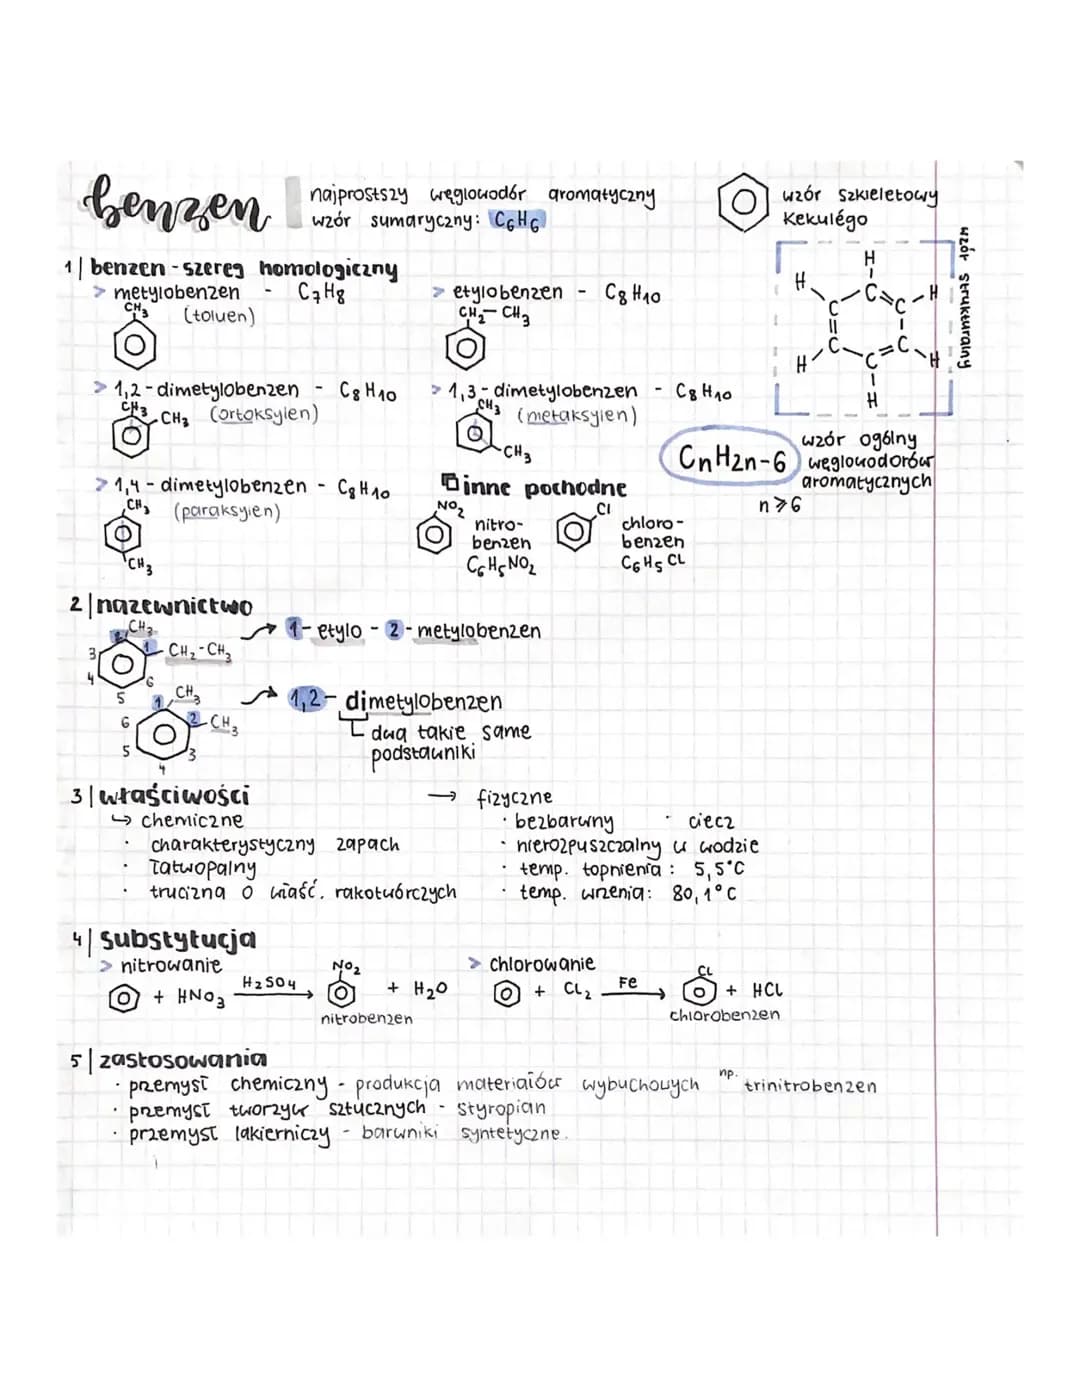 benzen
najprostszy węglowodór aromatyczny
wzór sumaryczny: C6H6
wzór szkieletowy
Kekulégo
wzór strukturalny
H
H C C H
C C
H C C H
H
1| benzen - szereg homologiczny
> metylobenzen - C7H8
(toluen)
CH3
> etylobenzen - C8H10
CH2-CH3
> 1,2-dimetylobenzen - C8H10
(ortoksylen)
CH3
CH3
> 1,3-dimetylobenzen - C8H10
(metaksylen)
CH3
CH3
CnH2n-6
wzór ogólny
węglowodorów
aromatycznych
n⩾6
> 1,4-dimetylobenzen - C8H10
(paraksylen)
CH3
CH3
inne pochodne
NO2
nitro-
benzen
C6H5NO2
Cl
chloro-
benzen
C6H5Cl
2| nazewnictwo
CH3
2 1 CH2-CH3
3 4 5 6
→ 1-etylo-2-metylobenzen
1 CH3
2 CH3
6 5 4 3
→ 1,2-dimetylobenzen
dwa takie same
podstawniki
3| właściwości
↳ chemiczne
· charakterystyczny zapach
· łatwopalny
· trucizna o właść. rakotwórczych
→ fizyczne
· bezbarwny · ciecz
· nierozpuszczalny w wodzie
· temp. topnienia: 5,5°C
· temp. wrzenia: 80,1°C
4| substytucja
> nitrowanie
+ HNO3 H2SO4 → NO2 + H2O
nitrobenzen
> chlorowanie
+ Cl2 Fe → Cl + HCl
chlorobenzen
5| zastosowania
· przemysł chemiczny - produkcja materiałów wybuchowych np. trinitrobenzen
· przemysł tworzyw sztucznych - styropian
· przemysł lakierniczy - barwniki syntetyczne.